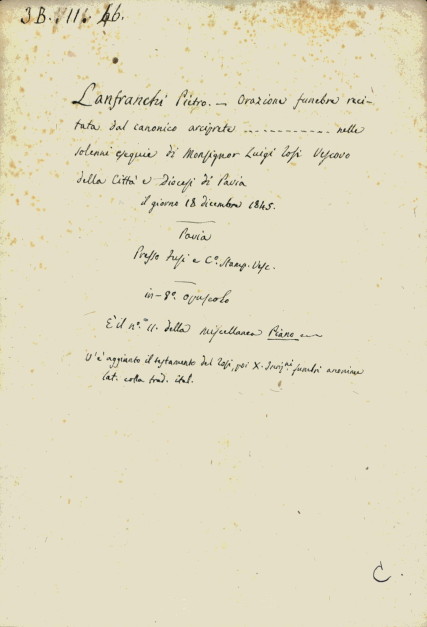 3B. 11. 46.
Lanfranchi Pietro. — Orazione funebre reci-
tata dal canonico arciprete ------------ nelle
solenni esequie di Monsignor Luigi Tosi Vescovo
della Città e Diocesi di Pavia
il giorno 18 dicembre 1845.
Pavia
Presso Fusi e Cº. Stamp. Vesc.
in-8º. opuscolo
È il nº. 11. della miscellanea Piano
V'è aggiunto il testamento del Tosi, poi X. Inscr.ni funebri anonime
lat. colla trad. ital.
C.